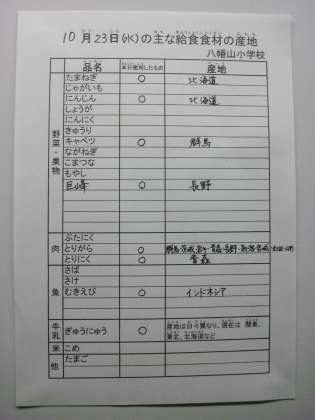 10月23日(水)の主な給食食材の産地
八幡山小学校
品名 本日使用したもの 産地
野菜・果物
たまねぎ ○ 北海道
じゃがいも
にんじん ○ 北海道
しょうが
にんにく
きゅうり
キャベツ ○ 群馬
ながねぎ
こまつな
もやし
巨峰 ○ 長野
肉
ぶたにく
とりがら ○ 群馬・茨城・岩手・青森・長野・新潟・宮城
とりにく ○ 青森
魚
さば
さけ
むきえび ○ インドネシア
牛乳 ぎゅうにゅう ○ 産地は日々異なり、現在は 関東、
東北、北海道など
米 こめ
他 たまご